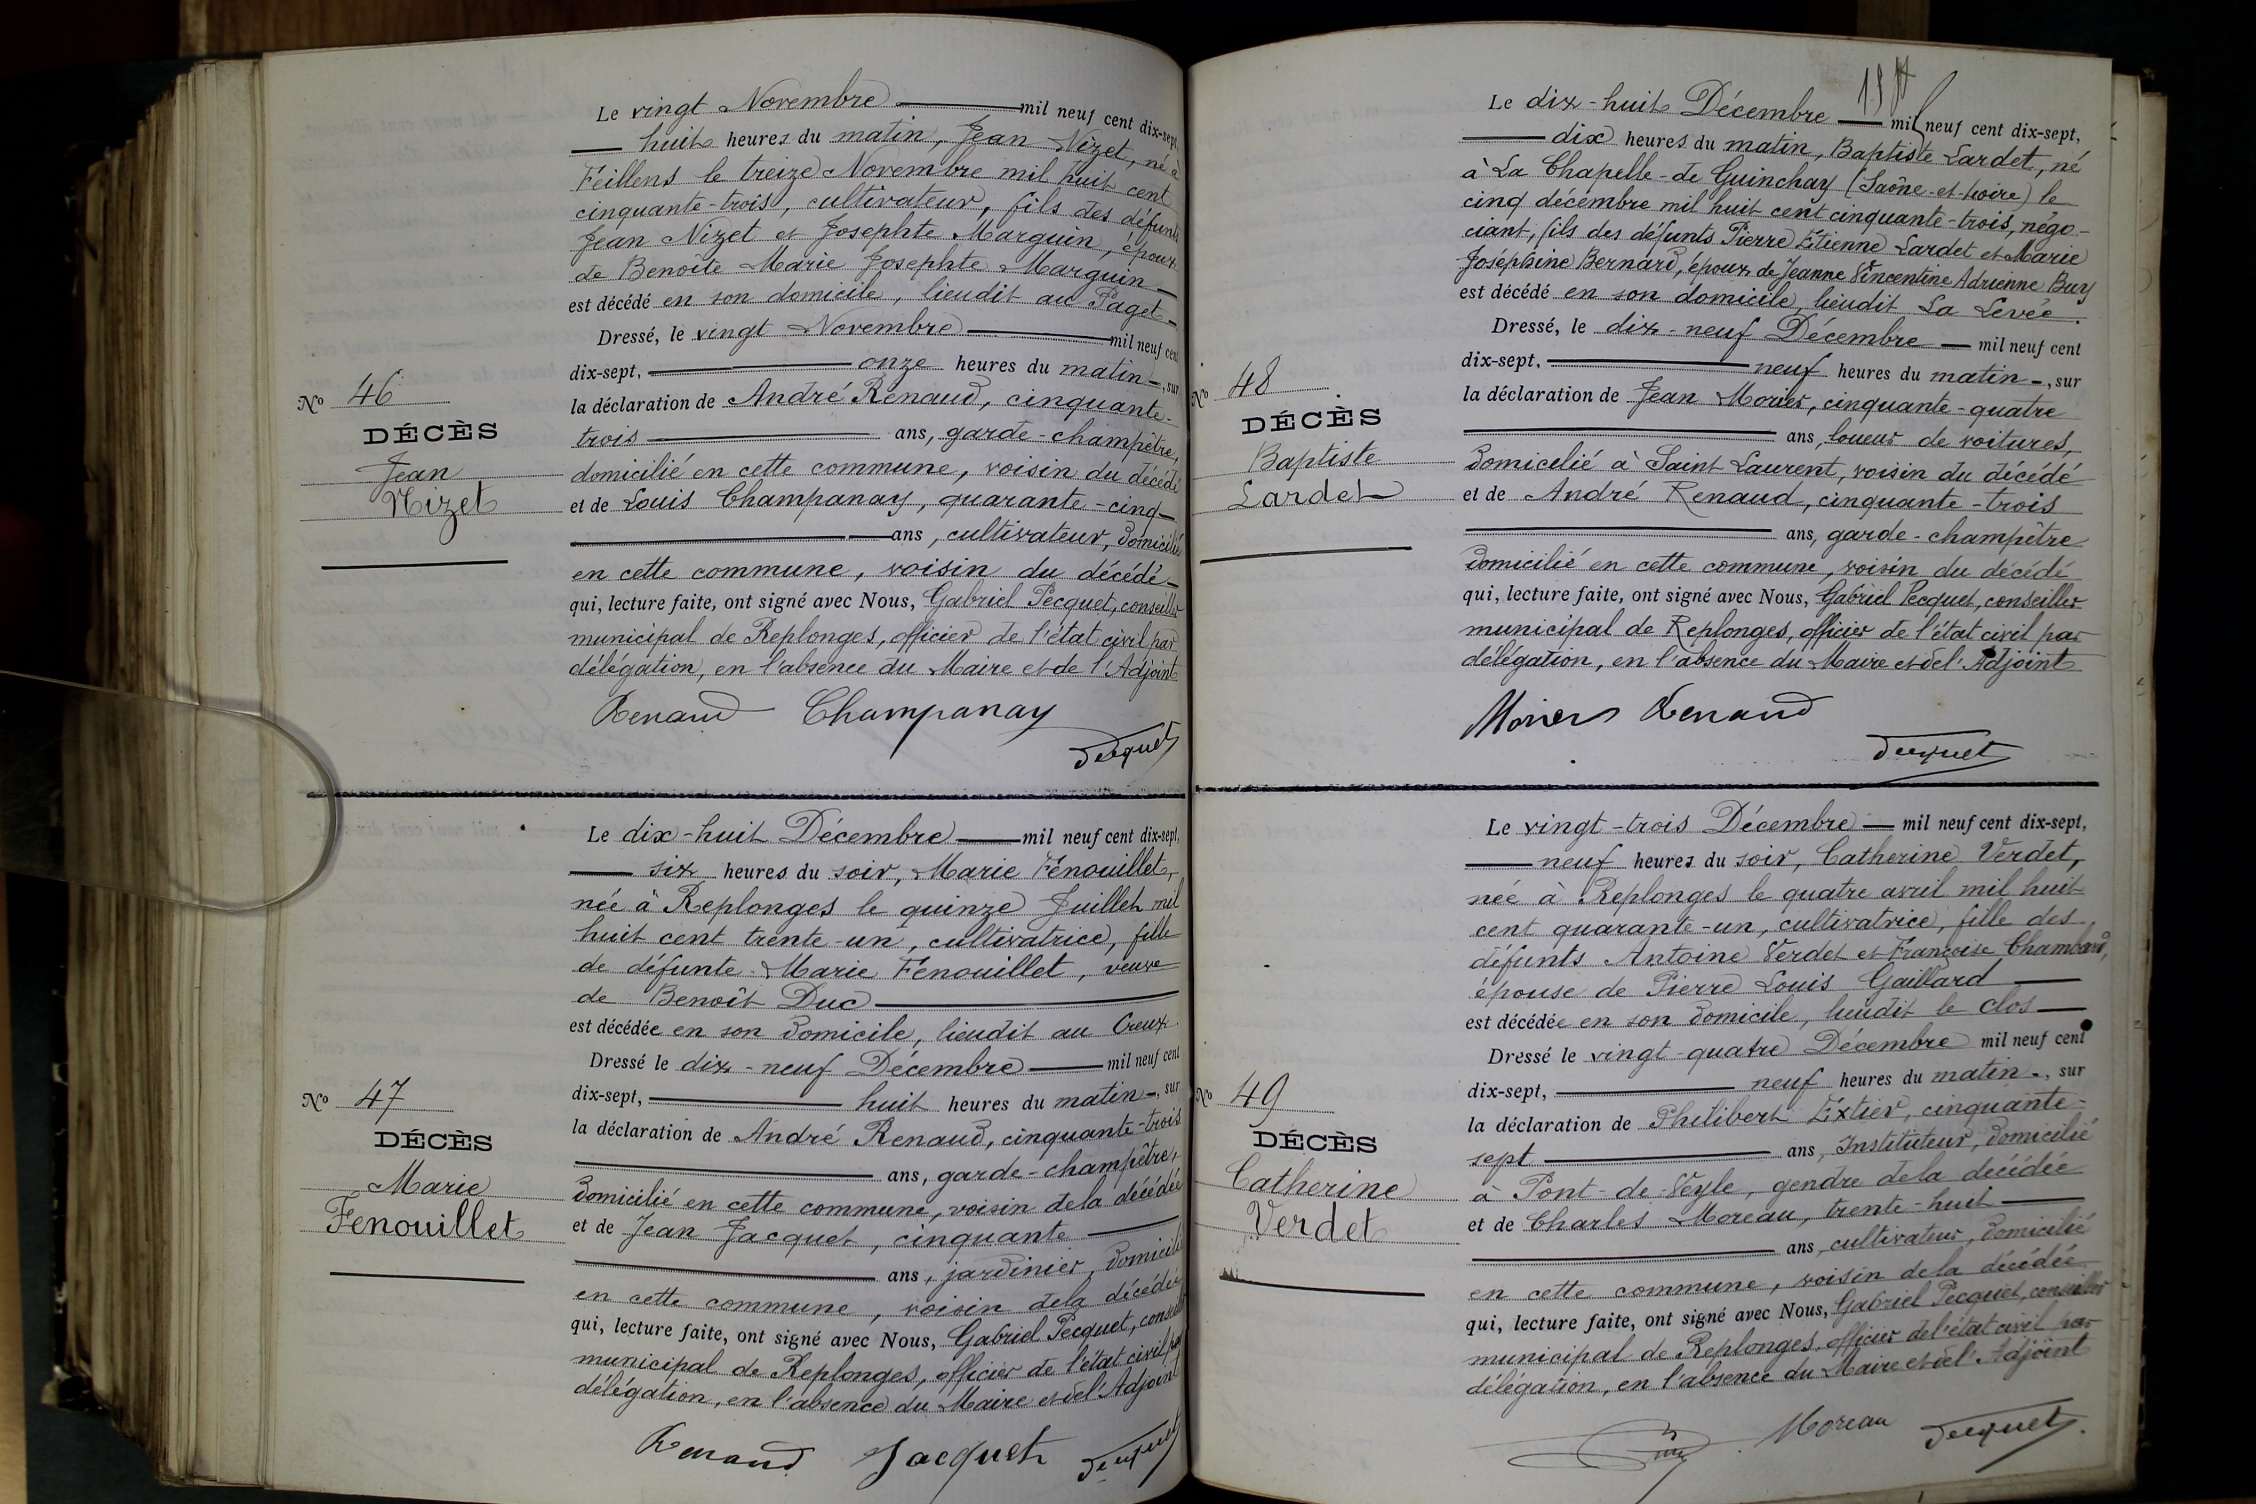 Le vingt Novembre mil neuf cent dix-sept,
huit heures du matin, Jean Nizet, né à
Feillens le treize Novembre mil huit cent
cinquante-trois, cultivateur, fils des défunts
Jean Nizet et Josephte Marguin, époux
de Benoîte Marie Josephte Marguin
est décédé en son domicile, lieudit au Paget
Dressé, le vingt Novembre mil neuf cent
dix-sept, onze heures du matin, sur
la déclaration de André Renaud, cinquante-
trois ans, garde-champêtre,
domicilié en cette commune, voisin du décédé
et de Louis Champanay, quarante-cinq
ans, cultivateur, domicilié
en cette commune, voisin du décédé
qui, lecture faite, ont signé avec Nous, Gabriel Pecquet, conseiller
municipal de Replonges, officier de l'état civil par
délégation, en l'absence du Maire et de l'Adjoint
Renaud Champanay
Pecquet
No 46
DÉCÈS
Jean
Nizet
Le dix-huit Décembre mil neuf cent dix-sept,
six heures du soir, Marie Fenouillet,
née à Replonges le quinze Juillet mil
huit cent trente-un, cultivatrice, fille
de défunte Marie Fenouillet, veuve
de Benoît Duc
est décédée en son domicile, lieudit au Creux
Dressé le dix-neuf Décembre mil neuf cent
dix-sept, huit heures du matin, sur
la déclaration de André Renaud, cinquante-trois
ans, garde-champêtre,
domicilié en cette commune, voisin de la décédée
et de Jean Jacquet, cinquante
ans, jardinier, domicilié
en cette commune, voisin de la décédée
qui, lecture faite, ont signé avec Nous, Gabriel Pecquet, conseiller
municipal de Replonges, officier de l'état civil par
délégation, en l'absence du Maire et de l'Adjoint
Renaud Jacquet Pecquet
No 47
DÉCÈS
Marie
Fenouillet
Le dix-huit Décembre mil neuf cent dix-sept,
dix heures du matin, Baptiste Lardet, né
à La Chapelle-de Guinchay (Saône-et-Loire) le
cinq décembre mil huit cent cinquante-trois, négo-
ciant, fils des défunts Pierre Etienne Lardet et Marie
Joséphine Bernard, époux de Jeanne Vincentine Adrienne Buy
est décédé en son domicile, lieudit La Levée.
Dressé, le dix-neuf Décembre mil neuf cent
dix-sept, neuf heures du matin, sur
la déclaration de Jean Morier, cinquante-quatre
ans, loueur de voitures,
domicilié à Saint Laurent, voisin du décédé
et de André Renaud, cinquante-trois
ans, garde-champêtre
domicilié en cette commune, voisin du décédé
qui, lecture faite, ont signé avec Nous, Gabriel Pecquet, conseiller
municipal de Replonges, officier de l'état civil par
délégation, en l'absence du Maire et de l'Adjoint
Morier Renaud
Pecquet
No 48
DÉCÈS
Baptiste
Lardet
Le vingt-trois Décembre mil neuf cent dix-sept,
neuf heures du soir, Catherine Verdet,
née à Replonges le quatre avril mil huit
cent quarante-un, cultivatrice, fille des
défunts Antoine Verdet et Françoise Chambard,
épouse de Pierre Louis Gaillard
est décédée en son domicile, lieudit le clos
Dressé le vingt-quatre Décembre mil neuf cent
dix-sept, neuf heures du matin, sur
la déclaration de Philibert Extier, cinquante-
sept ans, Instituteur, domicilié
à Pont-de-Veyle, gendre de la décédée
et de Charles Moreau, trente-huit
ans, cultivateur, domicilié
en cette commune, voisin de la décédée
qui, lecture faite, ont signé avec Nous, Gabriel Pecquet, conseiller
municipal de Replonges, officier de l'état civil par
délégation, en l'absence du Maire et de l'Adjoint
Moreau Pecquet
No 49
DÉCÈS
Catherine
Verdet